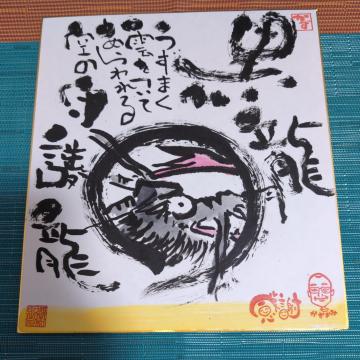 黒龍
うずまく
雲を
あらわれる
空の守護龍
感謝